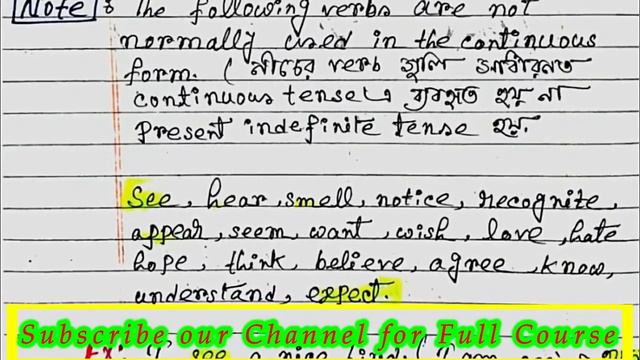 Note : The following verbs are not
normally used in the continuous
form. (নীচের verb গুলি সাধারনত
continuous tense এ ব্যবহৃত হয় না
Present indefinite tense হয়.
See, hear, smell, notice, recognite,
appear, seem, want, wish, love, hate
hope, think, believe, agree, know,
understand, expect.
Subscribe our Channel for Full Course
Ex: